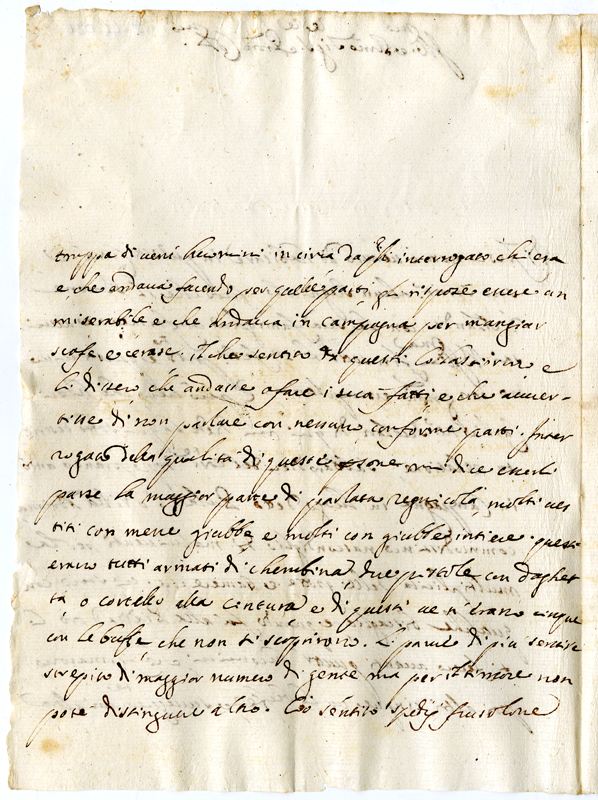 truppa di venti huomini in circa dagli interrogato chi era
e che andava facendo per quelle parti gli rispose essere un
miserabile e che andava in campagna per mangiar
scafe, e cerase; il che sentito da questi lo lasciorno e
li dissero che andasse a fare i suoi fatti e che avver-
tisse di non parlare con nessuno conforme partì. Inter
rogato della qualità di queste persone mi dice esserli
parse la maggior parte di parlata regnicola, molti ves
titi con meze giubbe, e molti con giubbe intiere questi
erano tutti armati di cherubina due pistole con daghet
ta o cortello alla cintura e di questi ve n'erano cinque
con le buffe che non si scoprirono. Li parve di più sentire
strepito di maggior numero di gente ma per il timore non
potè distinguer altro. Ciò sentito spedij